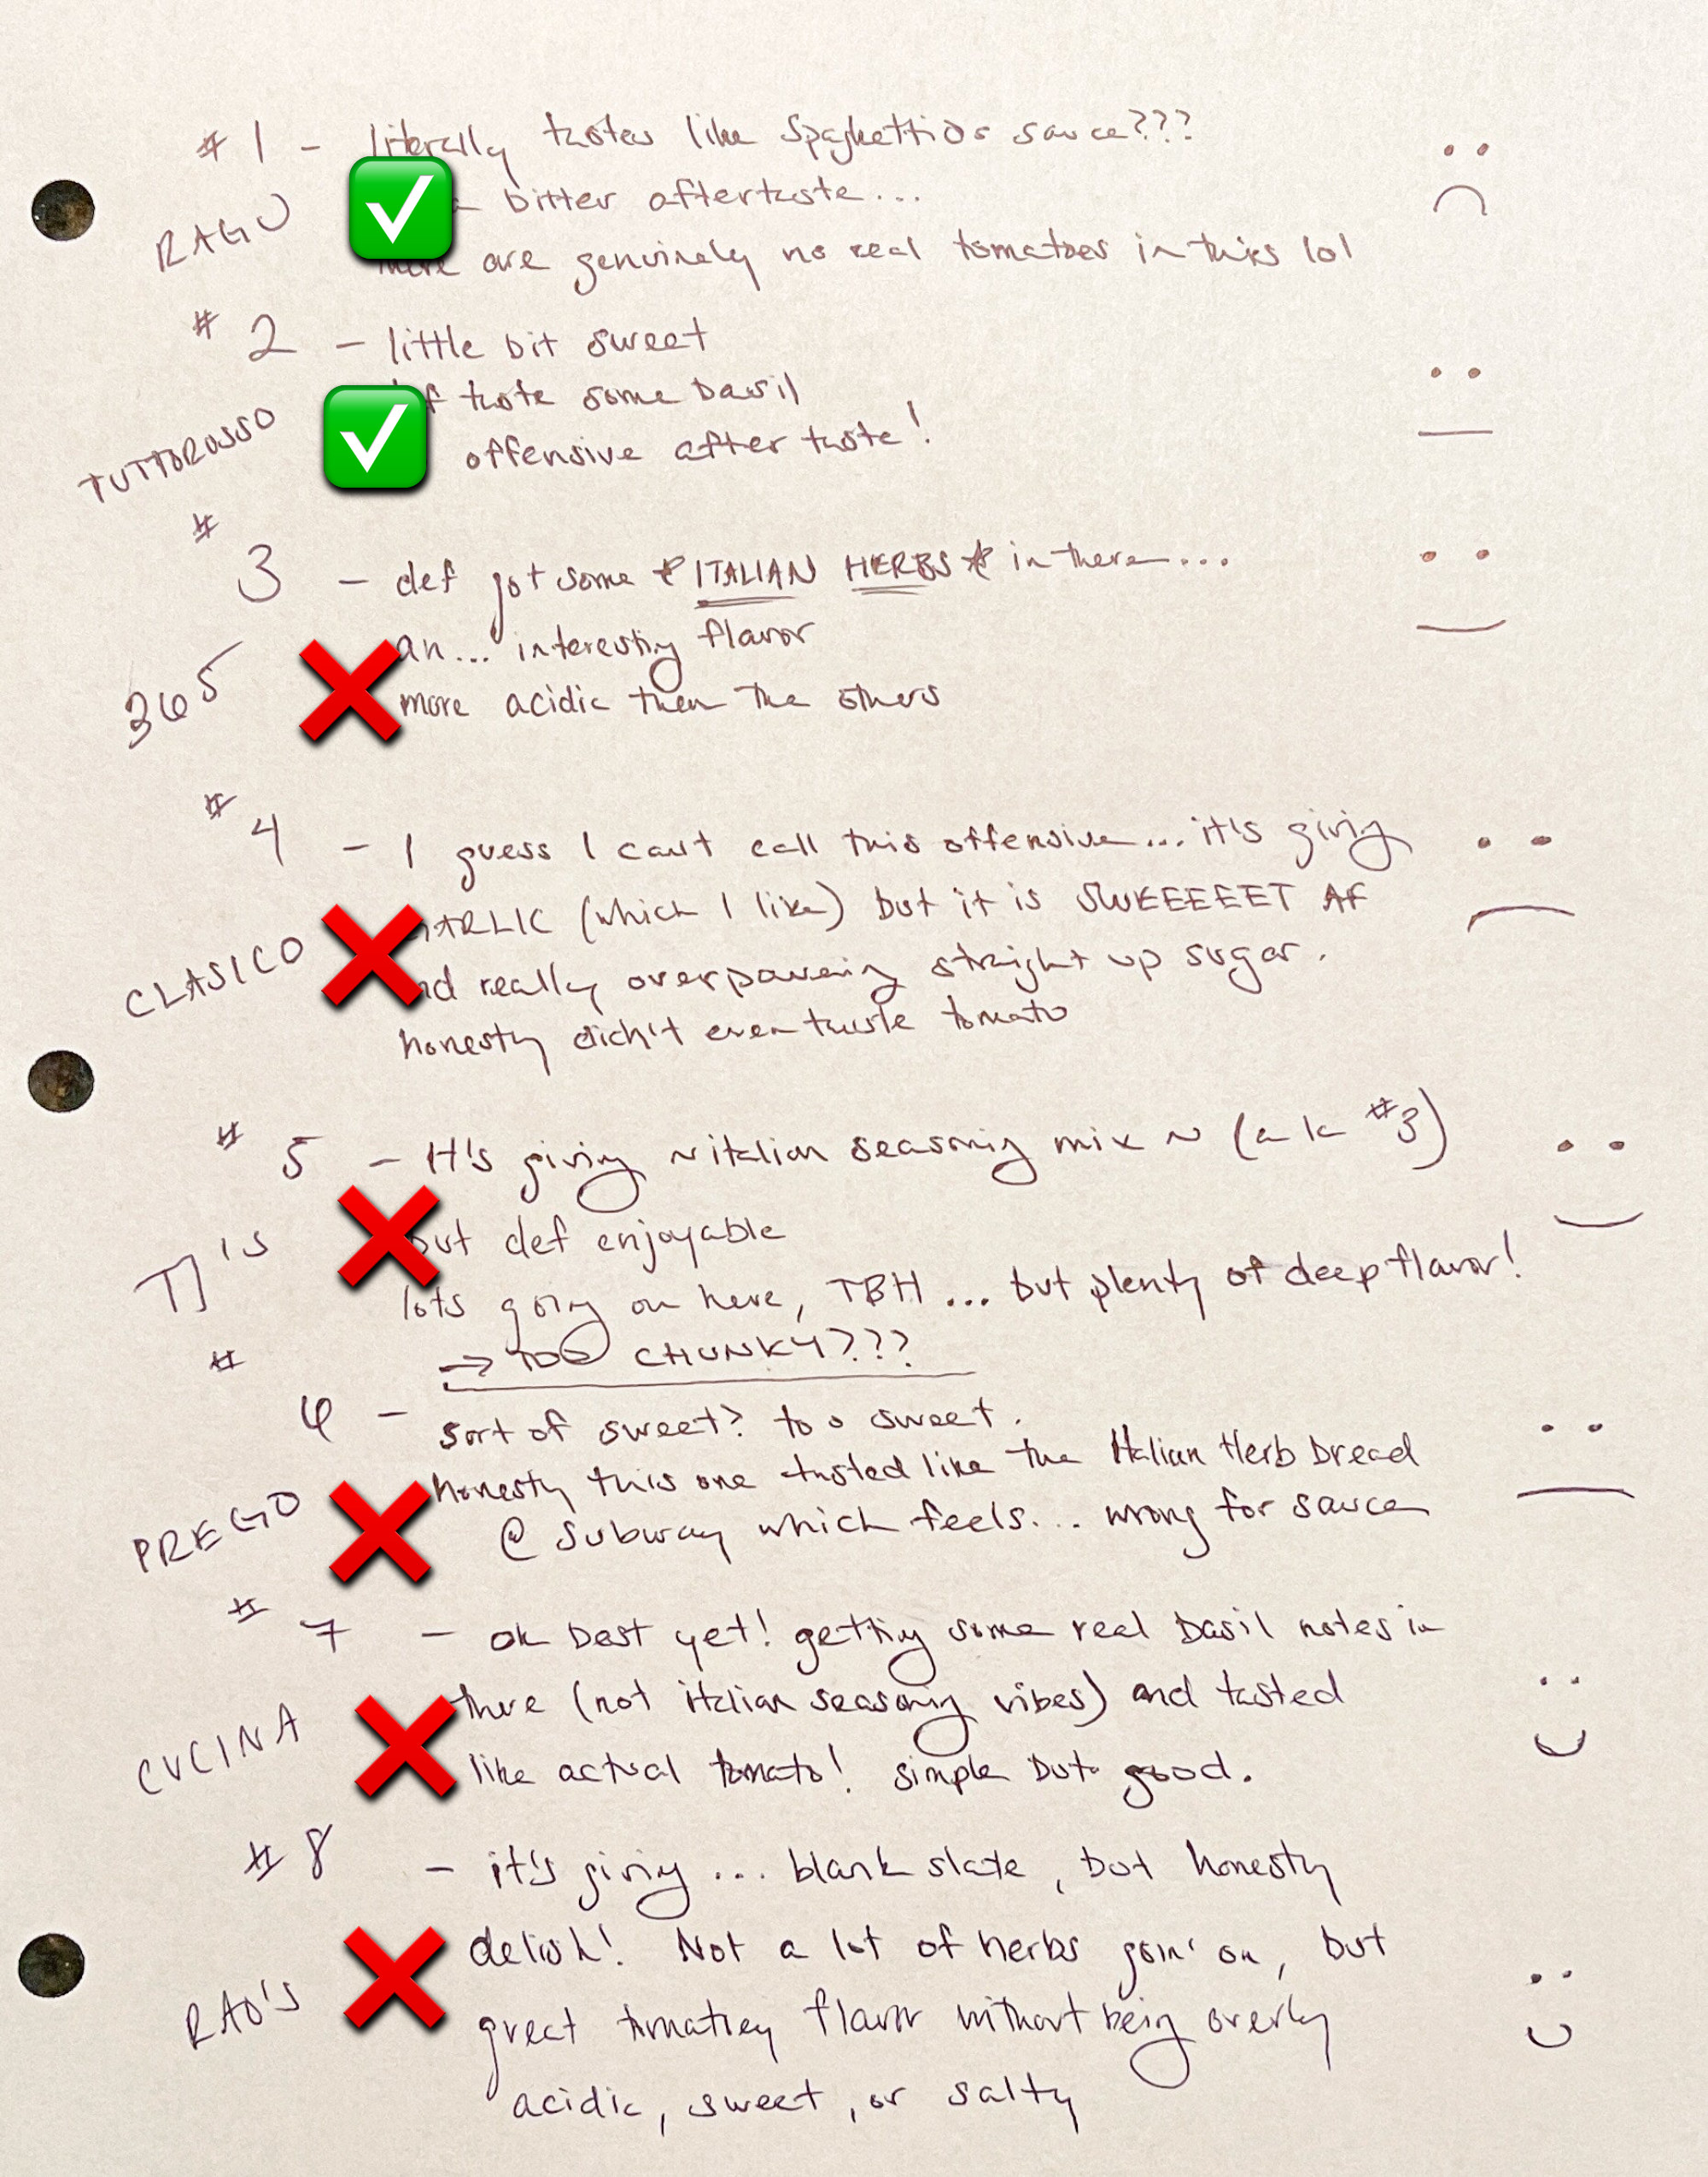 #1 - literally tastes like Spaghettios sauce???
a bitter aftertaste...
RAGU
there are genuinely no real tomatoes in this lol
#2 - little bit sweet
def taste some basil
TUTTOROSSO
offensive after taste!
#3 - def got some *ITALIAN HERBS* in there...
an... interesting flavor
365
more acidic then the others
#4 - I guess I can't call this offensive... it's giving
GARLIC (which I like) but it is SWEEEEEET AF
CLASICO
and really overpowering straight up sugar.
honestly didn't even taste tomato
#5 - It's giving ~ italian seasoning mix ~ (a k #3)
but def enjoyable
TJ's
lots going on here, TBH... but plenty of deep flavor!
→ TOO CHUNKY???
#6 - sort of sweet? too sweet.
honestly this one tasted like the Italian Herb bread
PREGO
@ Subway which feels... wrong for sauce
#7 - ok best yet! getting some real basil notes in
there (not italian seasoning vibes) and tasted
CUCINA
like actual tomato! simple but good.
#8 - it's giving... blank slate, but honestly
delish! Not a lot of herbs goin' on, but
RAO'S
great tomatoey flavor without being overly
acidic, sweet, or salty